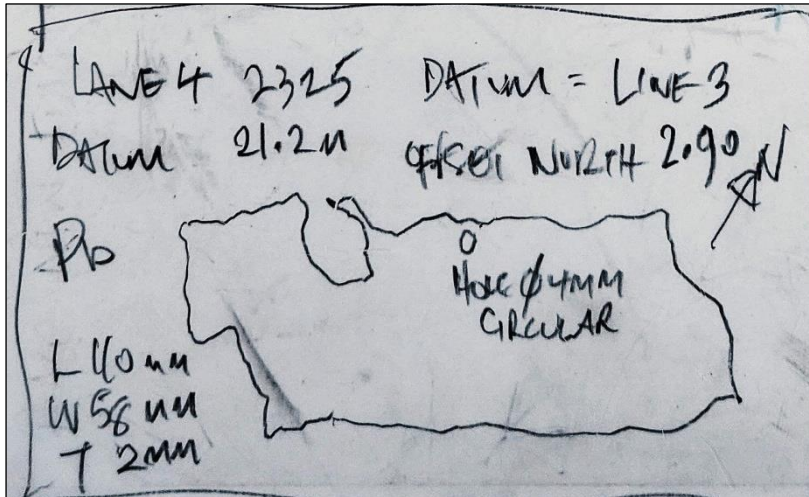 LANE 4 2325 DATUM = LINE 3
DATUM 21.2M OFFSET NORTH 2.90 N
Pb
HOLE Ø 4MM
CIRCULAR
L 110 MM
W 58 MM
T 2MM